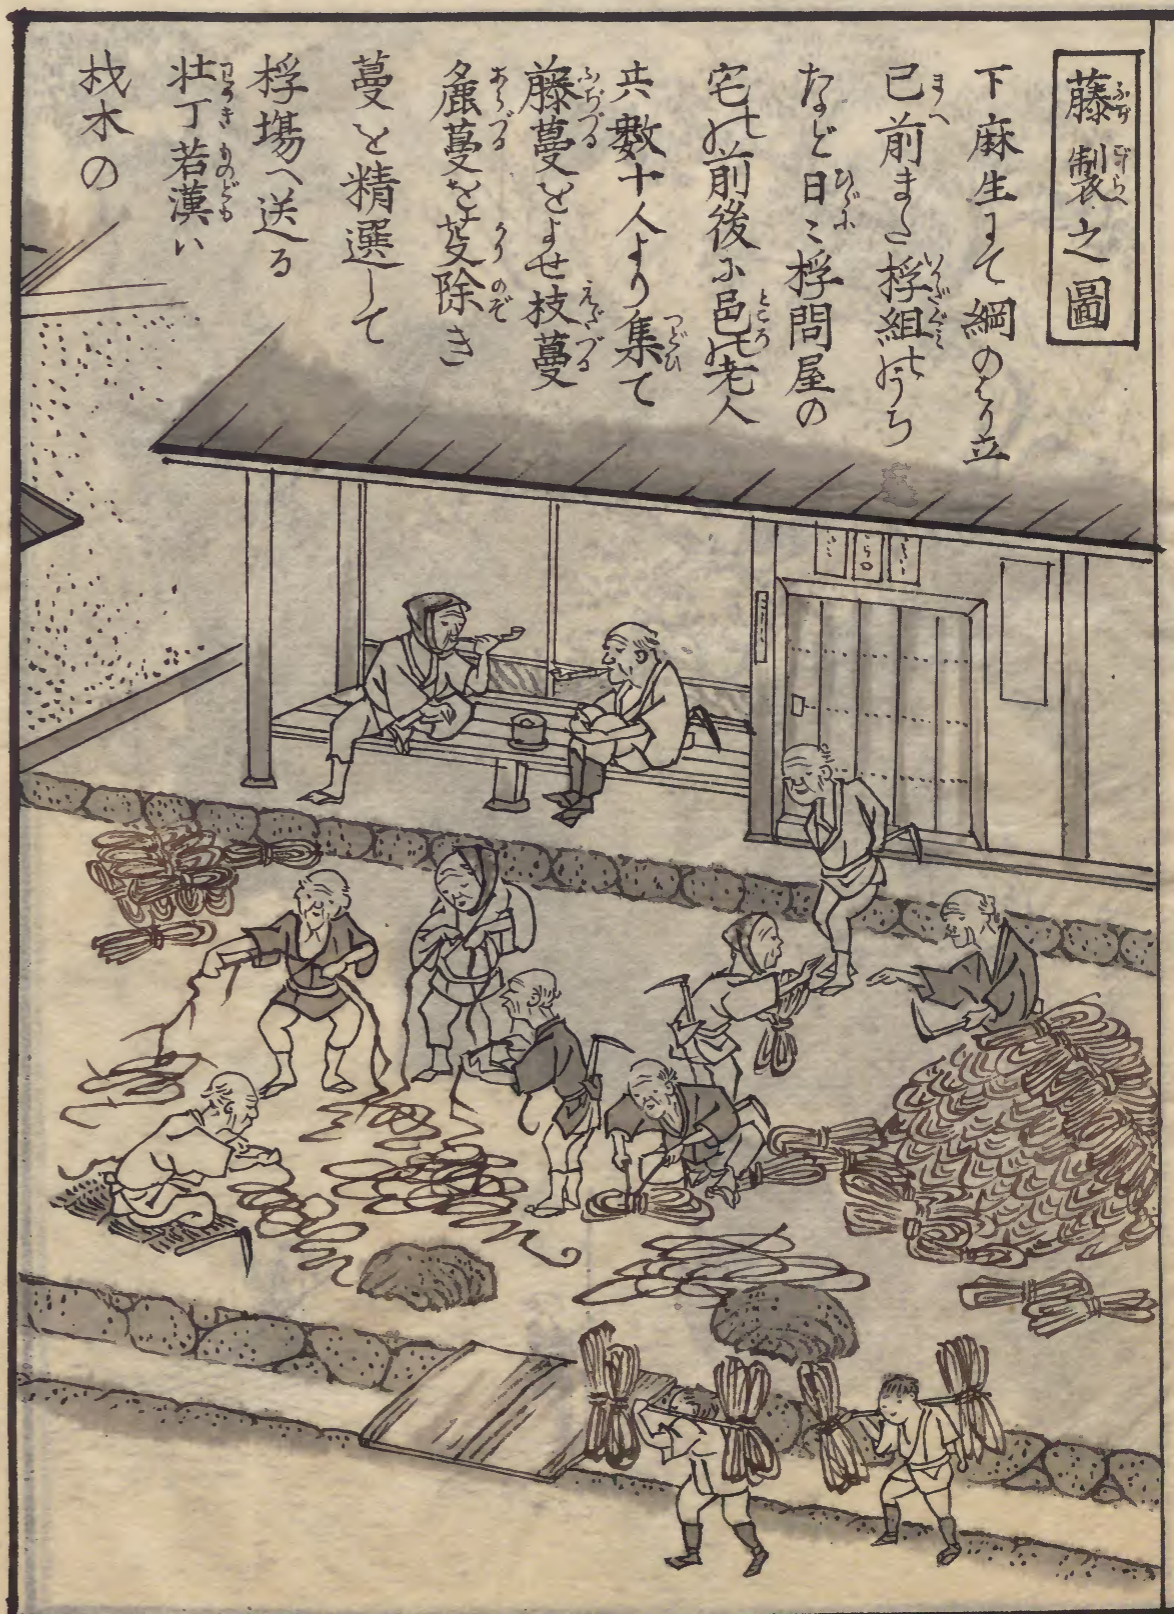 藤製之圖
下麻生にて綱のはり立
已前また桴組のうち
など日ニ桴問屋の
宅の前後に邑の老人
共數十人より集て
藤蔓をよせ枝蔓
麁蔓を芟除き
蔓を精選して
桴場へ送る
壮丁若漢ハ
材木の